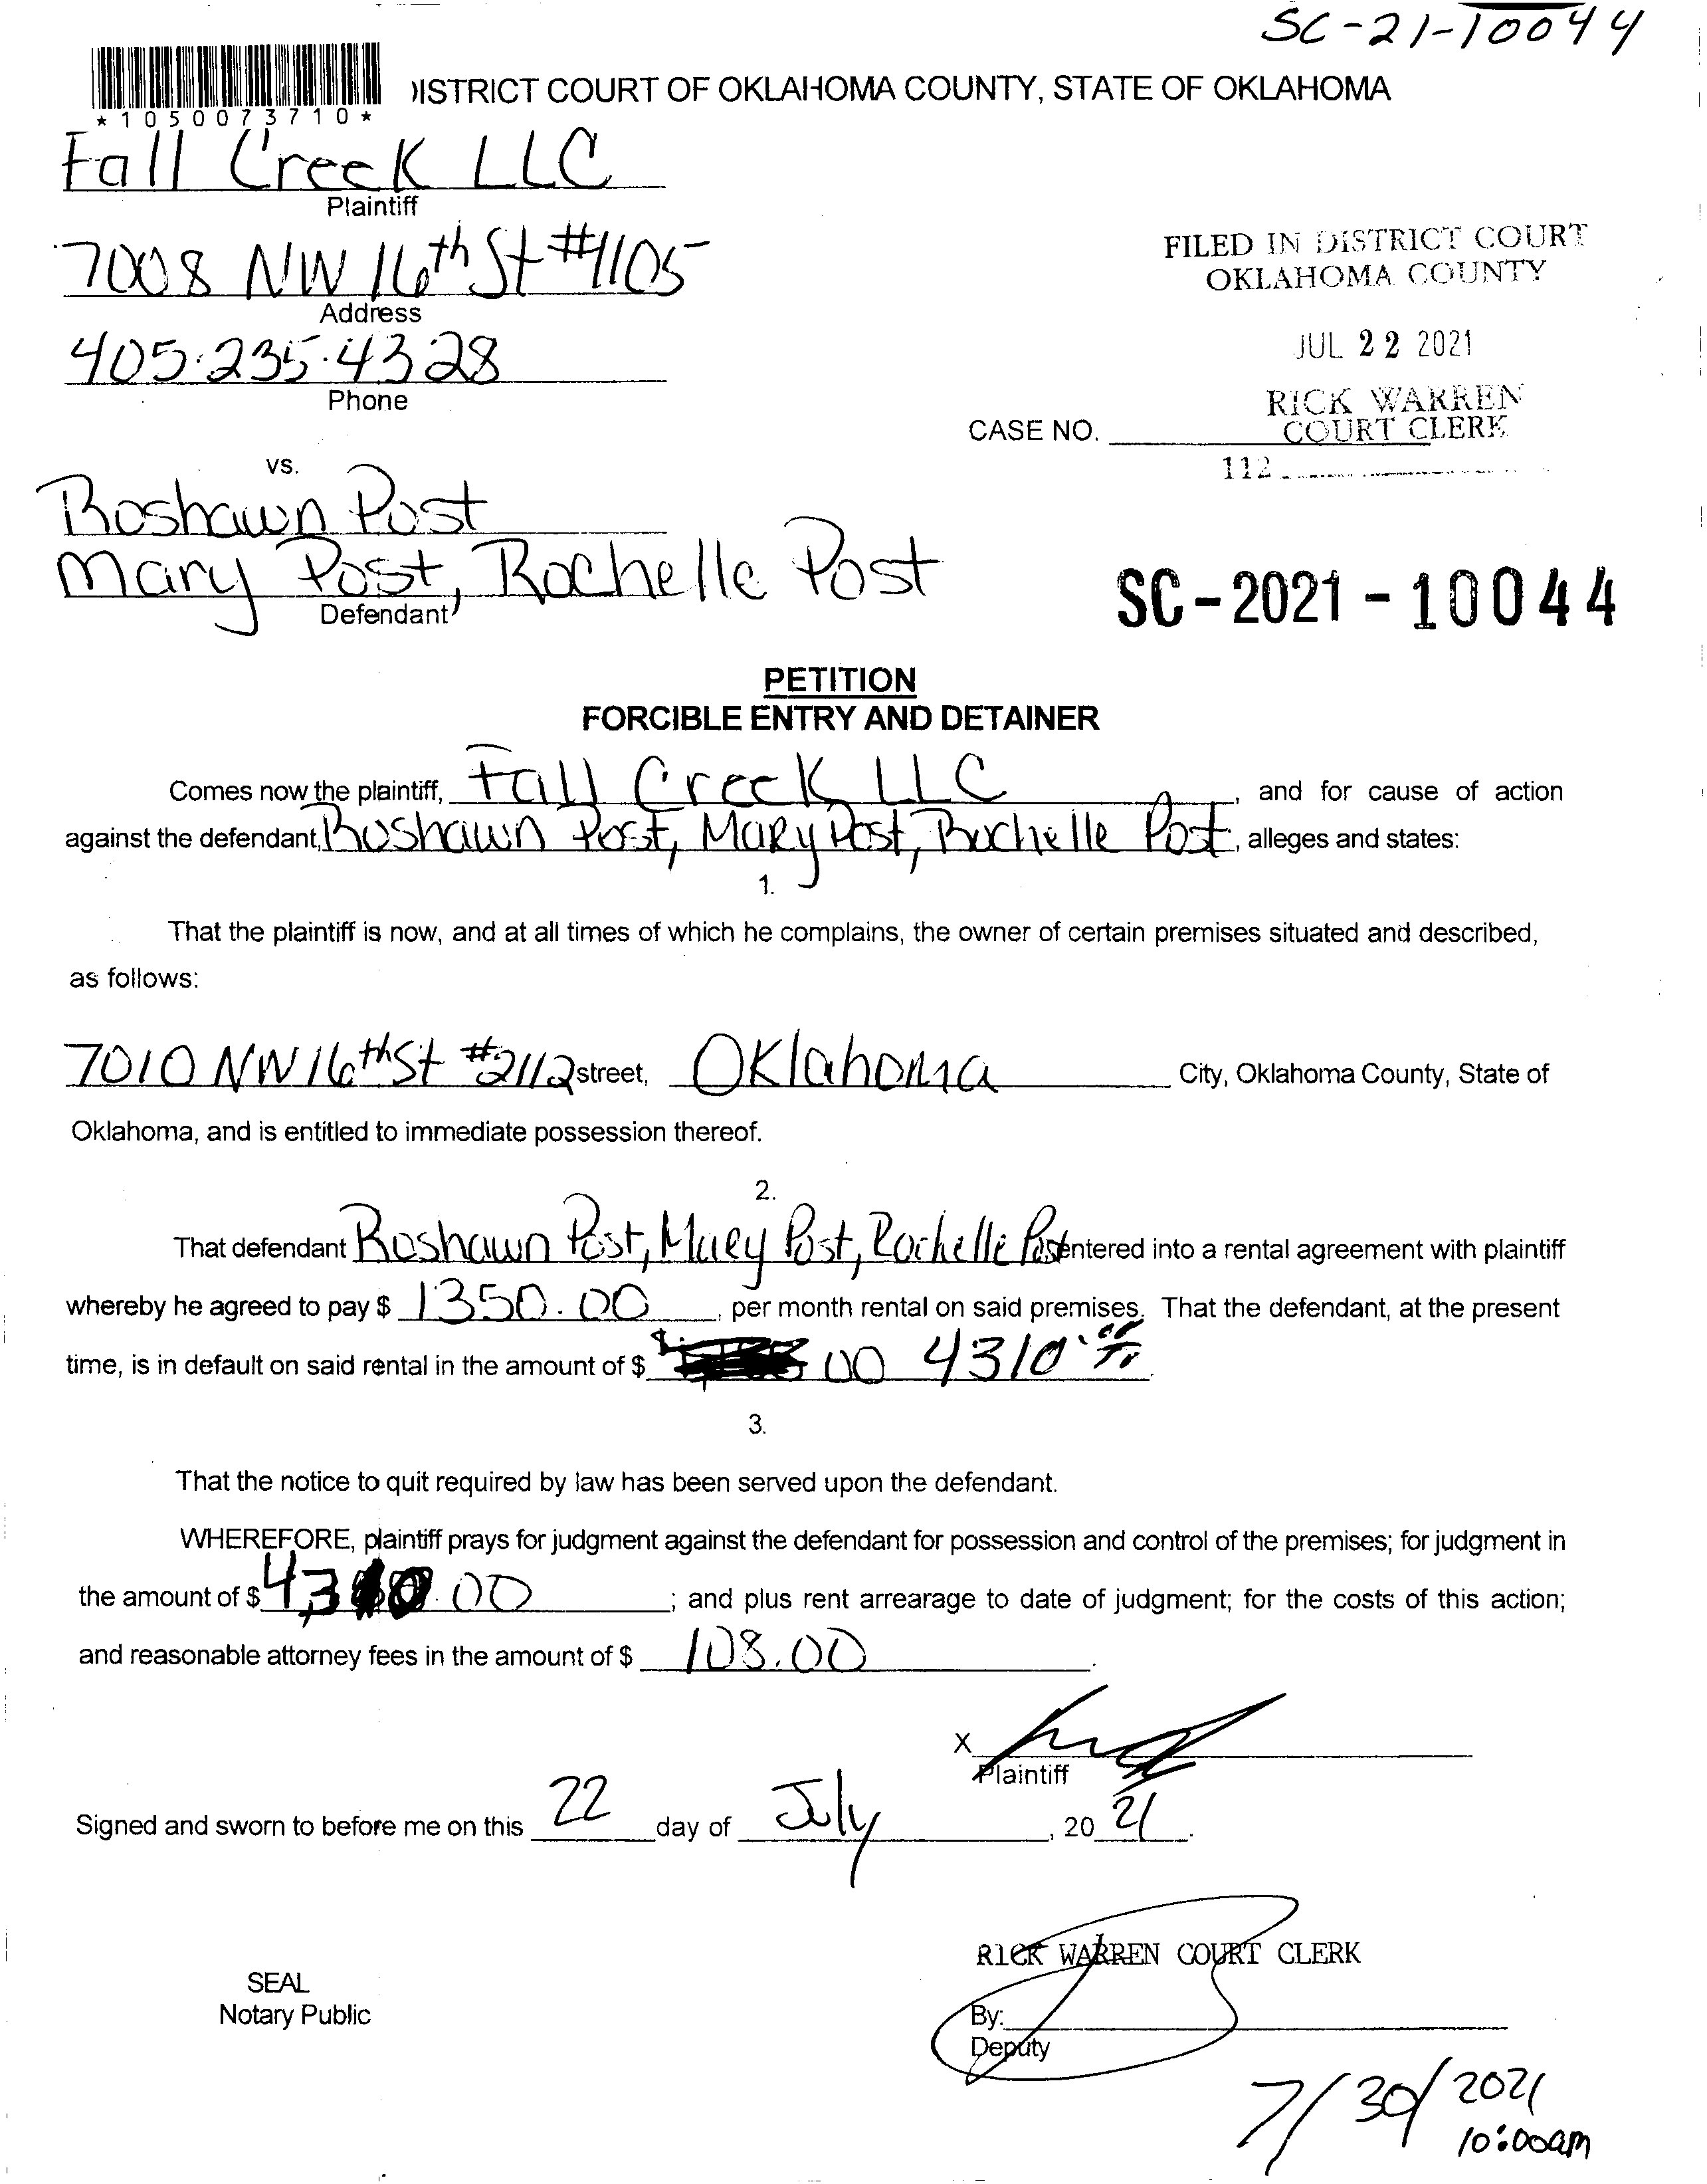 SC-21-10044
ISTRICT COURT OF OKLAHOMA COUNTY, STATE OF OKLAHOMA
*1050073710*
Fall Creek LLC
Plaintiff
7008 NW 16th St #1105
Address
405.235.4328
Phone
FILED IN DISTRICT COURT
OKLAHOMA COUNTY
JUL 22 2021
RICK WARREN
COURT CLERK
CASE NO.
112
vs.
Roshawn Post
Mary Post, Rochelle Post
Defendant
SC-2021-10044
PETITION
FORCIBLE ENTRY AND DETAINER
Comes now the plaintiff, Fall Creek LLC, and for cause of action
against the defendant, Roshawn Post, Mary Post, Rochelle Post, alleges and states:
1.
That the plaintiff is now, and at all times of which he complains, the owner of certain premises situated and described,
as follows:
7010 NW 16th St #2112 street, Oklahoma City, Oklahoma County, State of
Oklahoma, and is entitled to immediate possession thereof.
2.
That defendant Roshawn Post, Mary Post, Rochelle Post entered into a rental agreement with plaintiff
whereby he agreed to pay $ 1350.00, per month rental on said premises. That the defendant, at the present
time, is in default on said rental in the amount of $ 00 4310.
3.
That the notice to quit required by law has been served upon the defendant.
WHEREFORE, plaintiff prays for judgment against the defendant for possession and control of the premises; for judgment in
the amount of $ 4,310.00; and plus rent arrearage to date of judgment; for the costs of this action;
and reasonable attorney fees in the amount of $ 108.00.
X
Plaintiff
Signed and sworn to before me on this 22 day of July, 20 21.
RICK WARREN COURT CLERK
SEAL
Notary Public
By:
Deputy
7/30/2021
10:00am